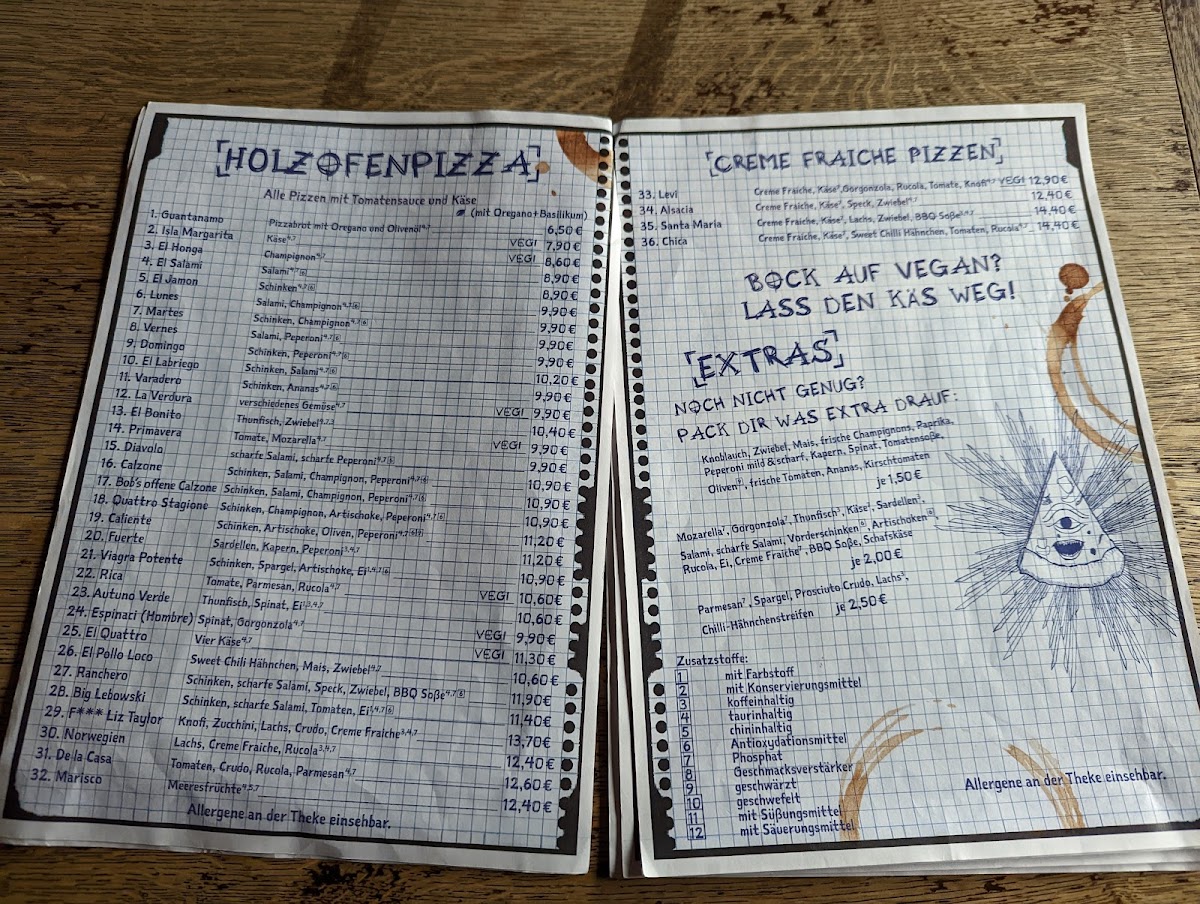 [HOLZOFENPIZZA]
Alle Pizzen mit Tomatensauce und Käse
(mit Oregano+Basilikum)
1. Guantanamo Pizzabrot mit Oregano und Olivenöl⁴,⁷ 6,50€
2. Isla Margarita Käse⁴,⁷ VEGI 7,90€
3. El Honga Champignon⁴,⁷ VEGI 8,60€
4. El Salami Salami⁴,⁷[6] 8,90€
5. El Jamon Schinken⁴,⁷[6] 8,90€
6. Lunes Salami, Champignon⁴,⁷[6] 9,90€
7. Martes Schinken, Champignon⁴,⁷[6] 9,90€
8. Vernes Salami, Peperoni⁴,⁷[6] 9,90€
9. Domingo Schinken, Peperoni⁴,⁷[6] 9,90€
10. El Labriego Schinken, Salami⁴,⁷[6] 10,20€
11. Varadero Schinken, Ananas⁴,⁷[6] 9,90€
12. La Verdura verschiedenes Gemüse⁴,⁷ VEGI 9,90€
13. El Bonito Thunfisch, Zwiebel⁴,⁷,³ 10,40€
14. Primavera Tomate, Mozarella⁴,⁷ VEGI 9,90€
15. Diavolo scharfe Salami, scharfe Peperoni⁴,⁷[6] 9,90€
16. Calzone Schinken, Salami, Champignon, Peperoni⁴,⁷[6] 10,90€
17. Bob's offene Calzone Schinken, Salami, Champignon, Peperoni⁴,⁷[6] 10,90€
18. Quattro Stagione Schinken, Champignon, Artischoke, Peperoni⁴,⁷[6] 10,90€
19. Caliente Schinken, Artischoke, Oliven, Peperoni⁴,⁷[6] 11,20€
20. Fuerte Sardellen, Kapern, Peperoni³,⁴,⁷ 11,20€
21. Viagra Potente Schinken, Spargel, Artischoke, Ei¹,⁴,⁷[6] 10,90€
22. Rica Tomate, Parmesan, Rucola⁴,⁷ VEGI 10,60€
23. Autuno Verde Thunfisch, Spinat, Ei¹,³,⁴,⁷ 10,60€
24. Espinaci (Hombre) Spinat, Gorgonzola⁴,⁷ VEGI 9,90€
25. El Quattro Vier Käse⁴,⁷ VEGI 11,30€
26. El Pollo Loco Sweet Chili Hähnchen, Mais, Zwiebel⁴,⁷ 10,60€
27. Ranchero Schinken, scharfe Salami, Speck, Zwiebel, BBQ Soße⁴,⁷[6] 11,90€
28. Big Lebowski Schinken, scharfe Salami, Tomaten, Ei¹,⁴,⁷[6] 11,40€
29. F*** Liz Taylor Knofi, Zucchini, Lachs, Crudo, Creme Fraiche³,⁴,⁷ 13,70€
30. Norwegien Lachs, Creme Fraiche, Rucola³,⁴,⁷ 12,40€
31. De la Casa Tomaten, Crudo, Rucola, Parmesan⁴,⁷ 12,60€
32. Marisco Meeresfrüchte⁴,⁵,⁷ 12,40€
Allergene an der Theke einsehbar.
[CREME FRAICHE PIZZEN]
33. Levi Creme Fraiche, Käse⁷,Gorgonzola, Rucola, Tomate, Knofi⁴,⁷ VEGI 12,90€
34. Alsacia Creme Fraiche, Käse⁷, Speck, Zwiebel⁴,⁷ 12,40€
35. Santa Maria Creme Fraiche, Käse⁷, Lachs, Zwiebel, BBQ Soße³,⁴,⁷ 14,40€
36. Chica Creme Fraiche, Käse⁷, Sweet Chilli Hähnchen, Tomaten, Rucola⁴,⁷ 14,40€
BOCK AUF VEGAN?
LASS DEN KÄS WEG!
[EXTRAS]
NOCH NICHT GENUG?
PACK DIR WAS EXTRA DRAUF:
Knoblauch, Zwiebel, Mais, frische Champignons, Paprika,
Peperoni mild & scharf, Kapern, Spinat, Tomatensoße,
Oliven[9], frische Tomaten, Ananas, Kirschtomaten
je 1,50€
Mozarella⁷, Gorgonzola⁷, Thunfisch³, Käse⁷, Sardellen³,
Salami, scharfe Salami, Vorderschinken[6], Artischoken[6],
Rucola, Ei, Creme Fraiche⁷, BBQ Soße, Schafskäse
je 2,00€
Parmesan⁷, Spargel, Prosciuto Crudo, Lachs³,
Chilli-Hähnchenstreifen je 2,50€
Zusatzstoffe:
1 mit Farbstoff
2 mit Konservierungsmittel
3 koffeinhaltig
4 taurinhaltig
5 chininhaltig
6 Antioxydationsmittel
7 Phosphat
8 Geschmacksverstärker
9 geschwärzt
10 geschwefelt
11 mit Süßungsmittel
12 mit Säuerungsmittel
Allergene an der Theke einsehbar.